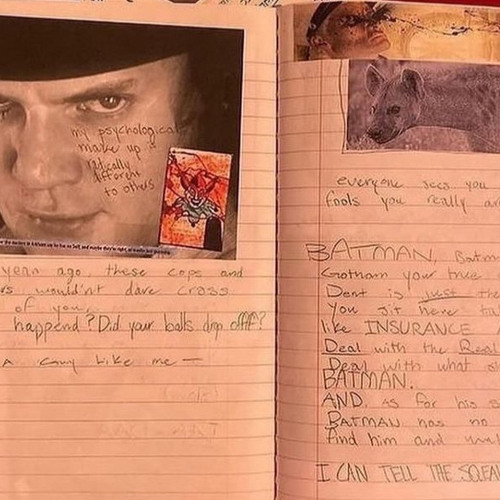 my psychological
make up is
radically
different
to others
year ago, these cops and
wouldn't dare cross
of you,
happend? Did your balls drop offf?
A Guy Like me —
everyone sees you
fools you really
BATMAN,
Gotham your true
Dent is just the
You sit here
like INSURANCE
Deal with the Real
Deal with what
BATMAN.
AND, as for his
BATMAN has no
find him and
I CAN TELL THE